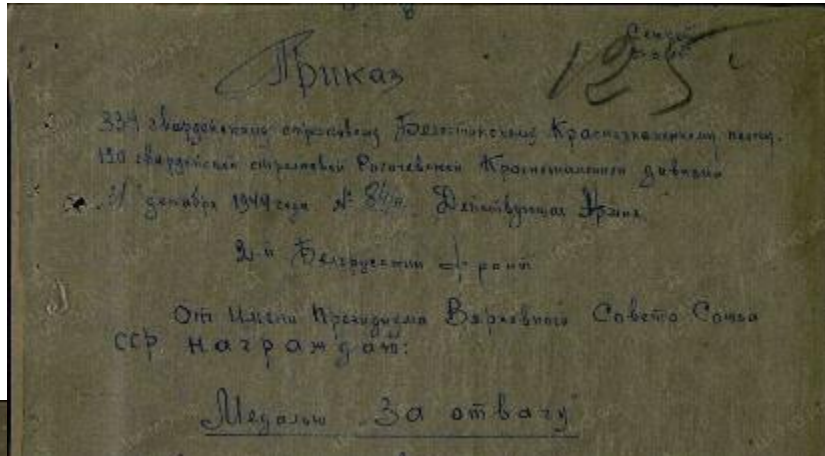 Приказ
125
334 гвардейскому стрелковому Белостокскому Краснознаменному полку.
120 гвардейской стрелковой Рогачевской Краснознаменной дивизии
31 декабря 1944 года № 84/н. Действующая Армия.
2-й Белорусский фронт
От Имени Президиума Верховного Совета Союза
ССР награждаю:
Медалью "За отвагу"